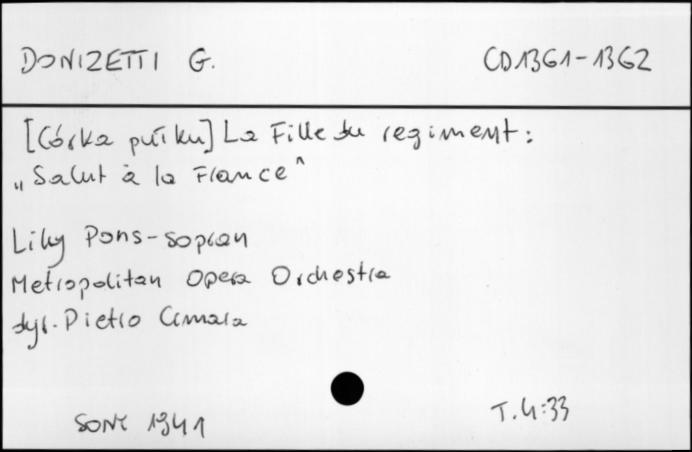 DONIZETTI G. CD1361-1362
[Córka pułku] La Fille du regiment:
„Salut à la France”
Lily Pons-sopran
Metropolitan Opera Orchestra
dyr. Pietro Cimara
SONY 1941 T. 4:33